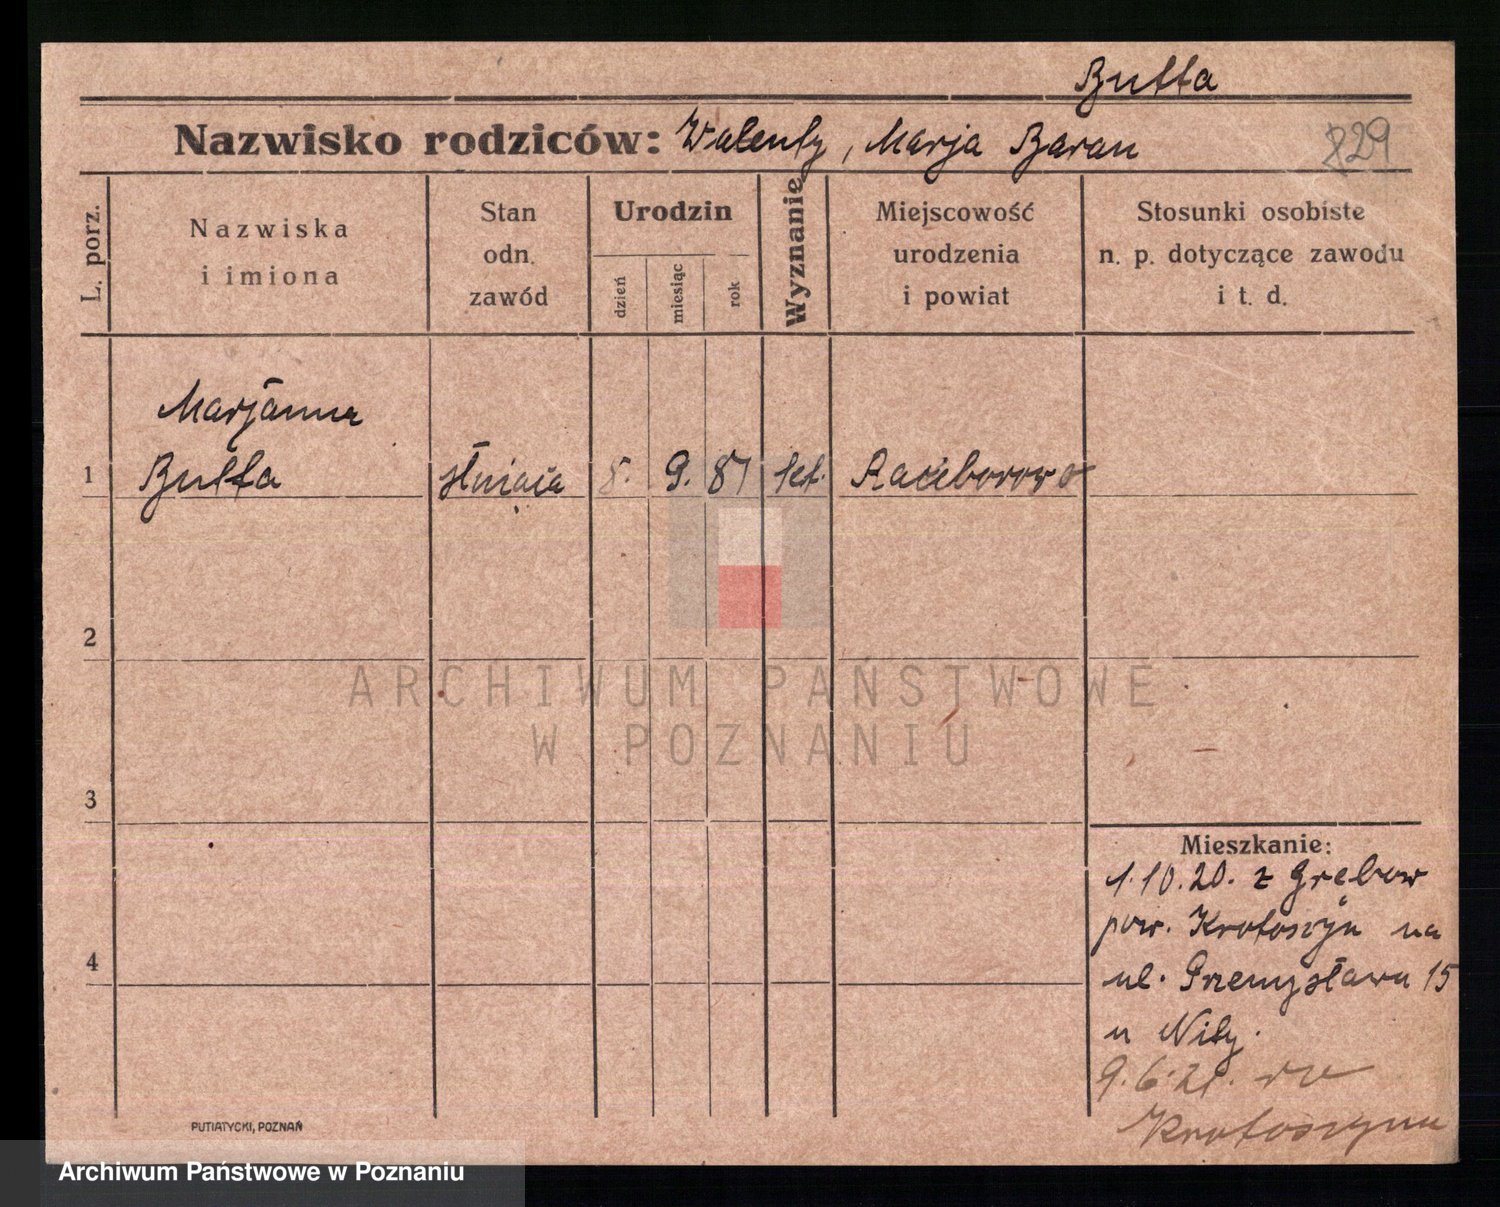 Butta
Nazwisko rodziców: Walenty, Marja Baran
829
L. porz.
Nazwiska
i imiona
Stan
odn.
zawód
Urodzin
dzień
miesiąc
rok
Wyznanie
Miejscowość
urodzenia
i powiat
Stosunki osobiste
n. p. dotyczące zawodu
i t. d.
Marjanna
1 Butta służąca 8. 9. 87 kat. Raciborowo
2
3
4
Mieszkanie:
1.10.20. z Grębow
pow. Krotoszyn na
ul. Przemysława 15
u Nity.
9.6.21. do
Krotoszyna
PUTIATYCKI, POZNAŃ
ARCHIWUM PAŃSTWOWE
W POZNANIU
Archiwum Państwowe w Poznaniu